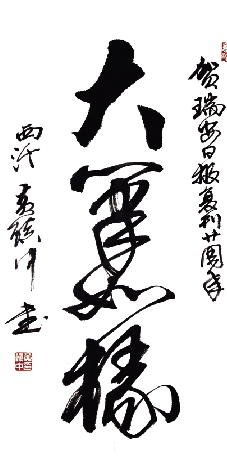 贺瑞安日报复刊廿周年
大笔如椽
西泠 黄 书